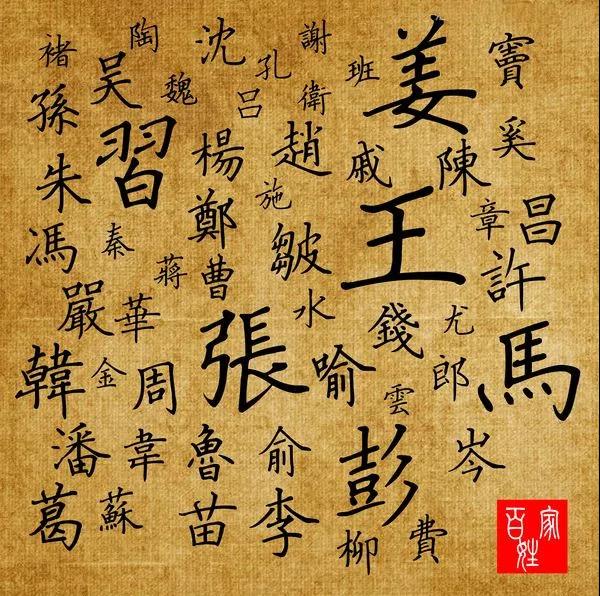 褚 陶 沈 孔 謝 班 姜 竇
孫 吳 魏 呂 衛 奚
朱 習 楊 趙 戚 陳
馮 秦 鄭 施 王 章 昌
蔣 曹 皺 許
嚴 華 水 錢 尤
韓 金 周 張 喻 雲 郎 馬
潘 韋 魯 俞 彭 岑
葛 蘇 苗 李 柳 費
百家姓